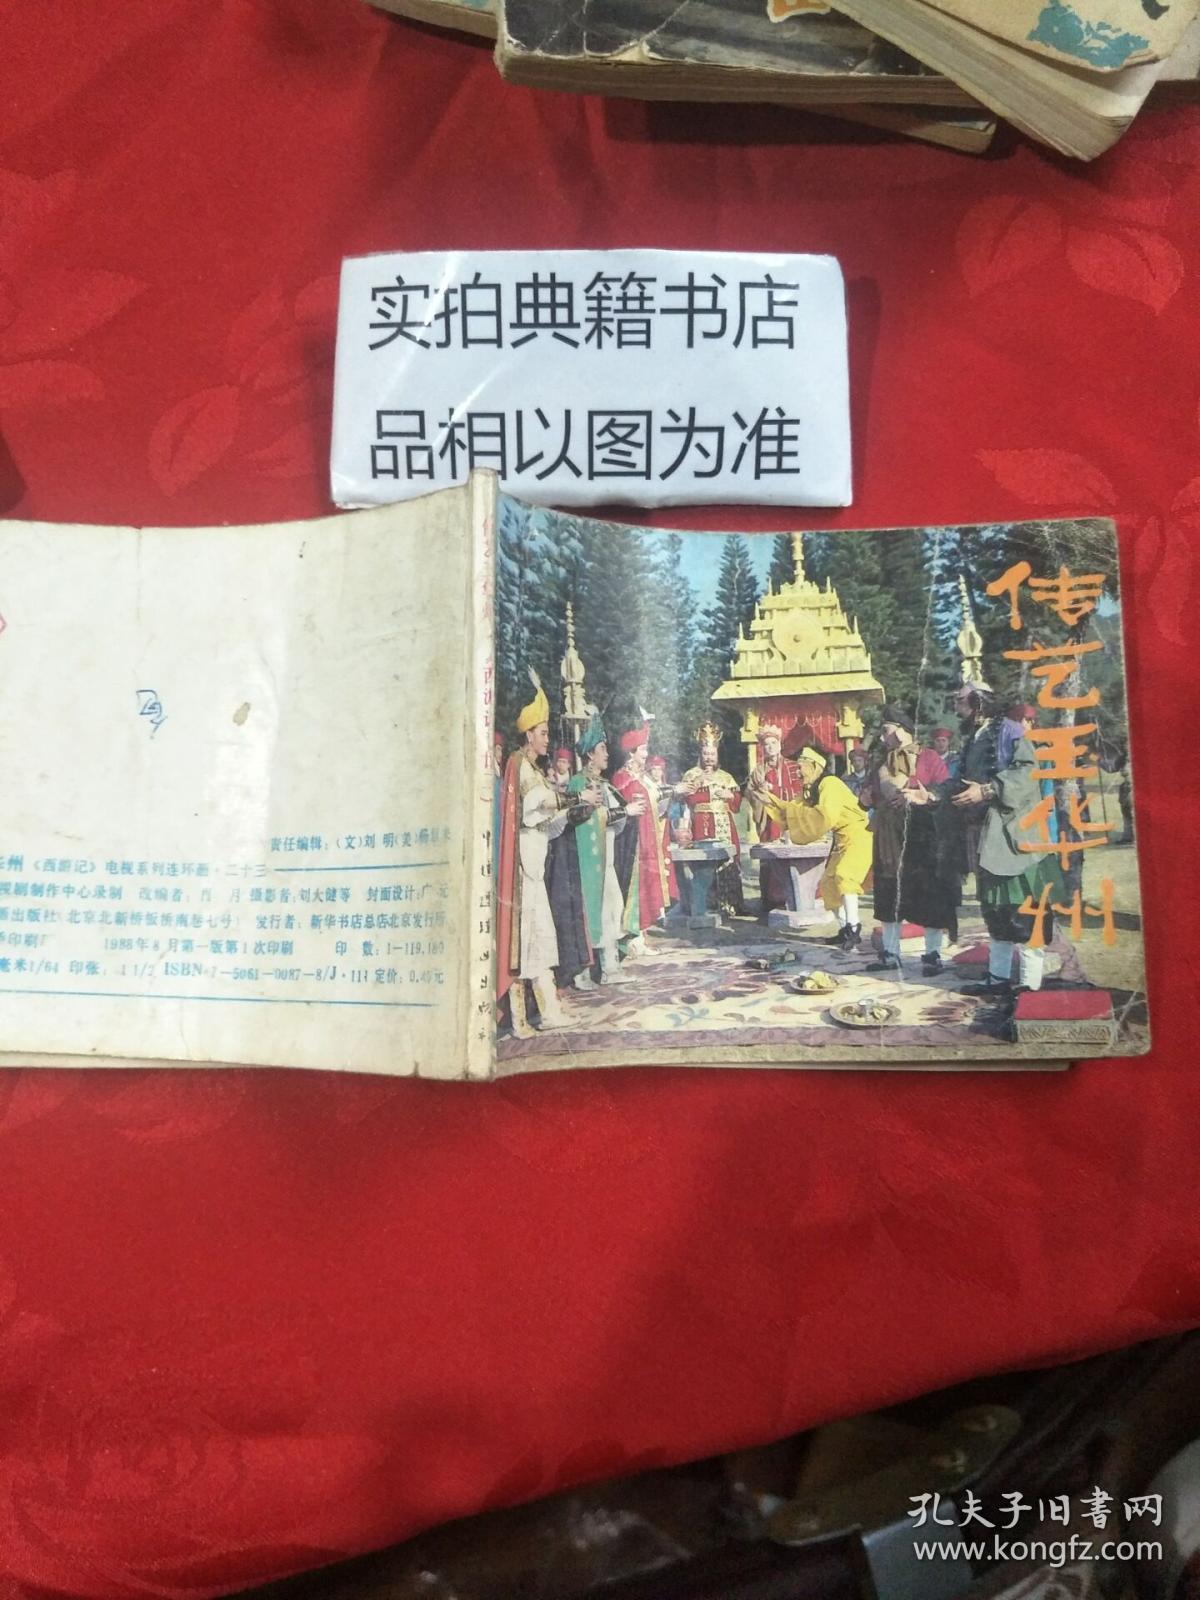 实拍典籍书店
品相以图为准
传艺玉华州
责任编辑：（文）刘 明（美）杨
华州《西游记》电视系列连环画·二十三
视剧制作中心录制 改编者：肖 月 摄影者：刘大健等 封面设计：广 元
画出版社（北京北新桥板桥南巷七号） 发行者：新华书店总店北京发行所
季印刷厂 1988年8月第一版第1次印刷 印 数：1—119,180
毫米1/64 印张： 1 1/2 ISBN 7—5061—0087—8/J·114 定价：0.45元
孔夫子旧書网
www.kongfz.com